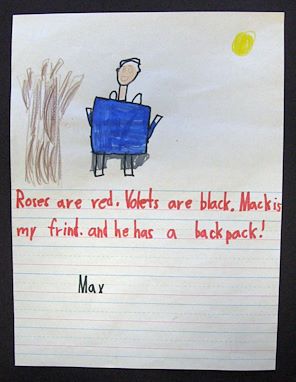 Roses are red. Volets are black. Mack is
my frind. and he has a backpack!
Max